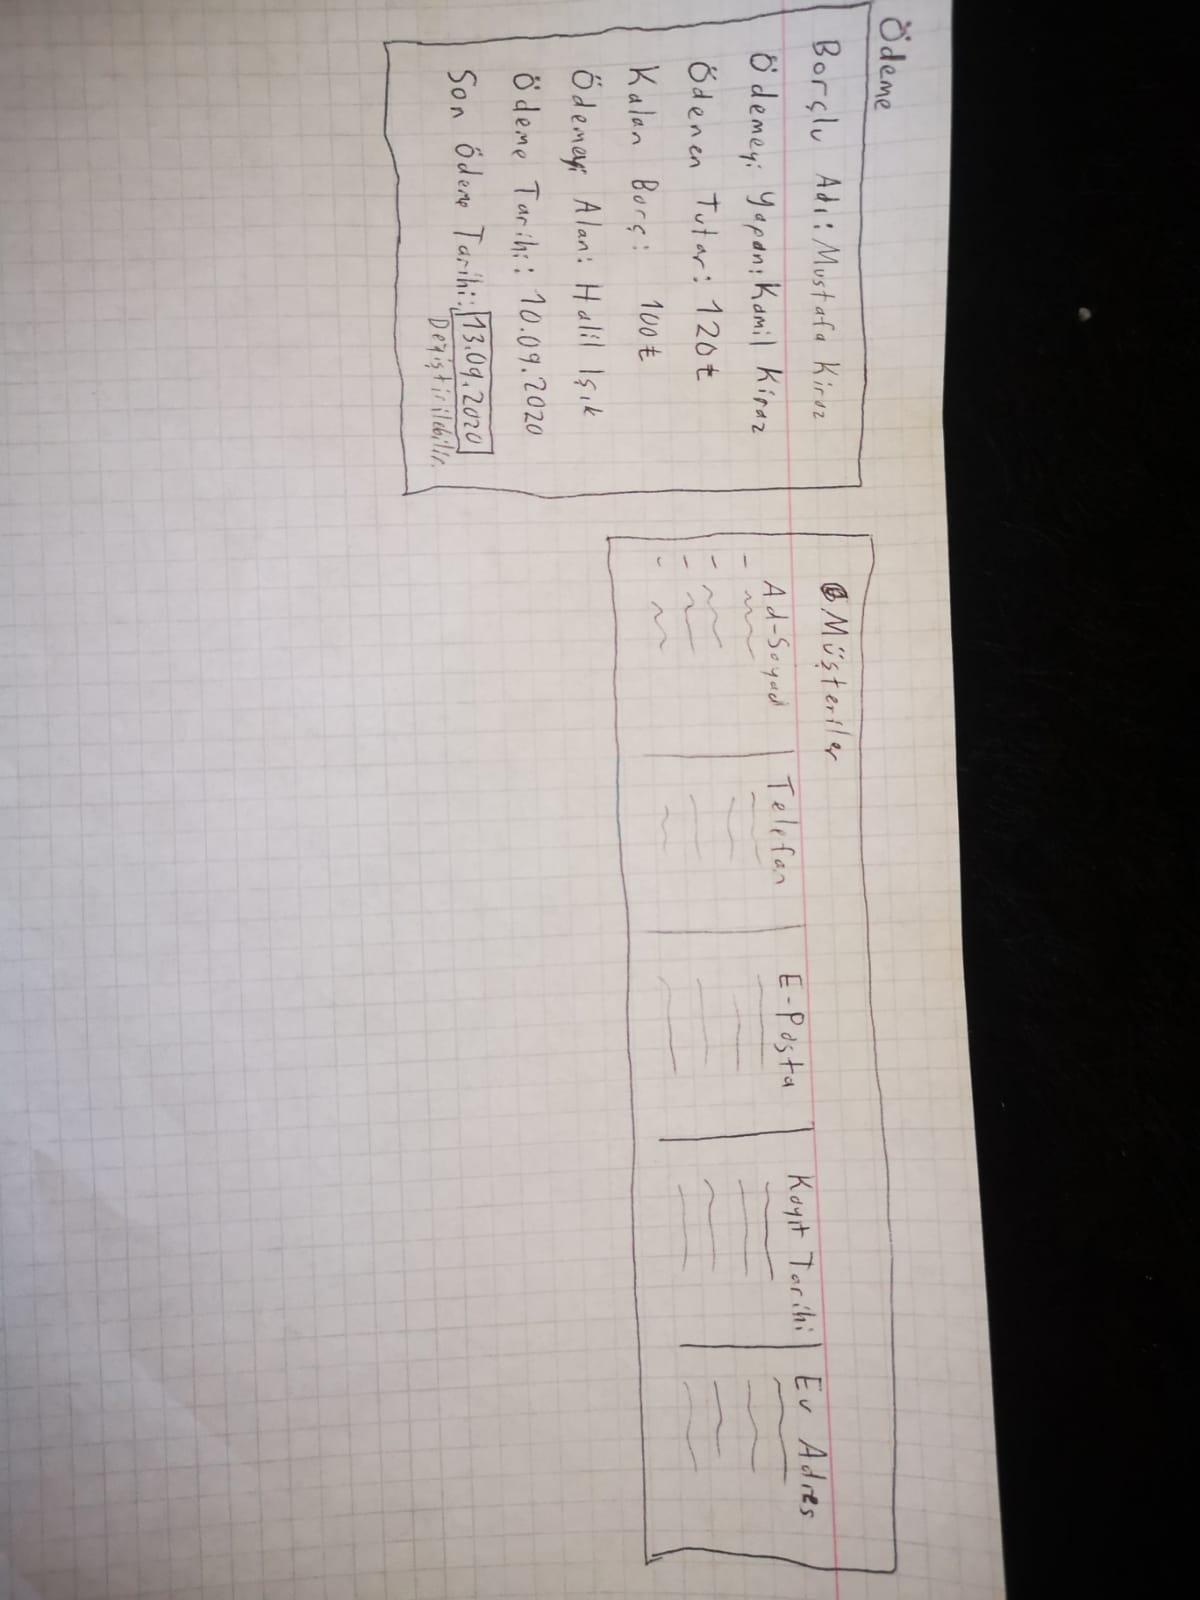 Ödeme
Borçlu Adı: Mustafa Kiraz
Ödemeyi Yapan: Kamil Kiraz
Ödenen Tutar: 120₺
Kalan Borç: 100₺
Ödemeyi Alan: Halil Işık
Ödeme Tarihi: 10.09.2020
Son Ödeme Tarihi: 13.09.2020
Değiştirilebilir.
Müşteriler
Ad-Soyad Telefon E-Poşta Kayıt Tarihi Ev Adres